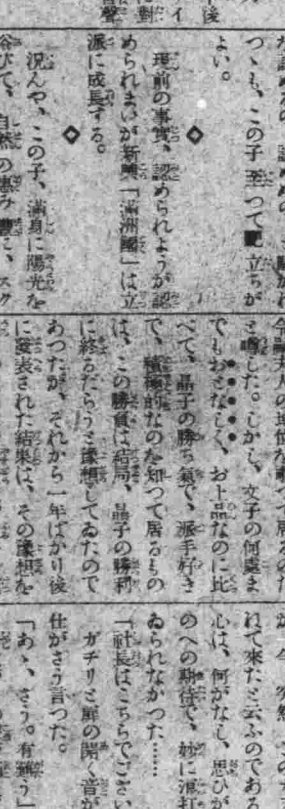 つゝも、この子 至つて 立ちが
よい。
◇
現前の事實、認められようが認
められまいが新興「滿洲國」は立
派に成長する。
◇
況んや、この子、滿身に陽光を
浴びて、自然の惠み豐
と噂した。しかし、文子の何處ま
でもおとなしく、お上品なのに比
べて、晶子の勝ち氣で、派手好き
で、積極的なのを知つて居るもの
は、この勝負は結局、晶子の勝利
に終るだらうと豫想してゐたので
あつたが、それから一年ばかり後
に發表された結果は、その豫想を
れて來たと云ふのである
心は、何がなし、思ひが
のへの期待で、妙に浪打
ゐられなかつた……
「社長はこちらでござい
ガチリと扉の開く音が
仕がさう言つた。
「あゝ、さう。有難う」